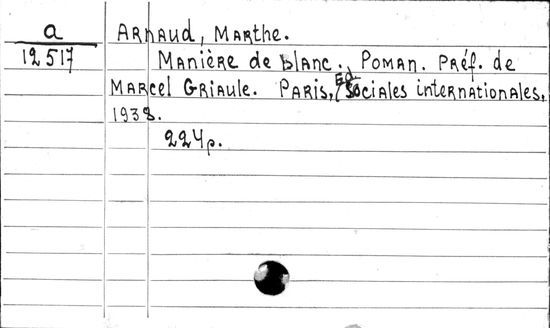 a
12517
Arnaud, Marthe.
Manière de blanc., Roman. Préf. de
Marcel Griaule. Paris, Ed. Sociales internationales,
1938.
224p.